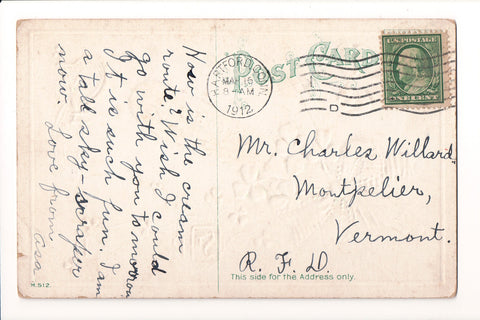 POST CARD
HARTFORD, CONN.
MAR 15
9-AM
1912
D
U.S. POSTAGE
ONE CENT
How is the cream
route? Wish I could
go with you tomorrow
It is such fun. I am
a tall sky-scraper
now
Love from
asa
Mr. Charles Willard
Montpelier,
Vermont.
R. F. D.
This side for the Address only.
H.512.